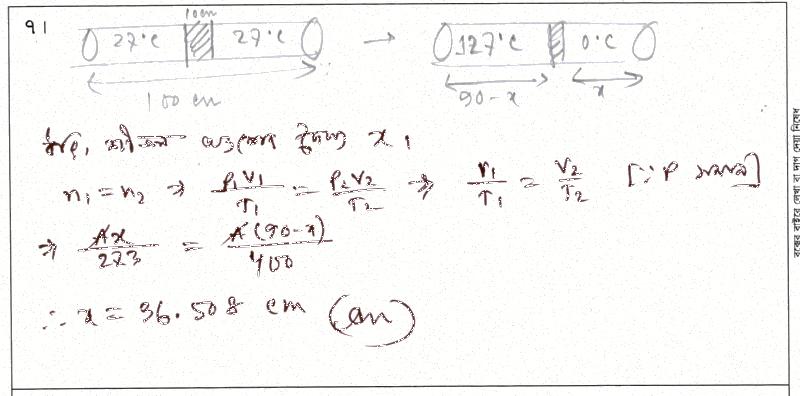 ৭।
10cm
27°C 27°C → 127°C 0°C
100 cm 90-x x
ধরি, শীতল অংশের দৈর্ঘ্য x।
n₁ = n₂ ⇒ P₁V₁/T₁ = P₂V₂/T₂ ⇒ V₁/T₁ = V₂/T₂ [∵ P সমান]
⇒ Ax/273 = A(90-x)/400
∴ x = 36.508 cm (An)
বক্সের বাইরে লেখা বা দাগ দেয়া নিষেধ